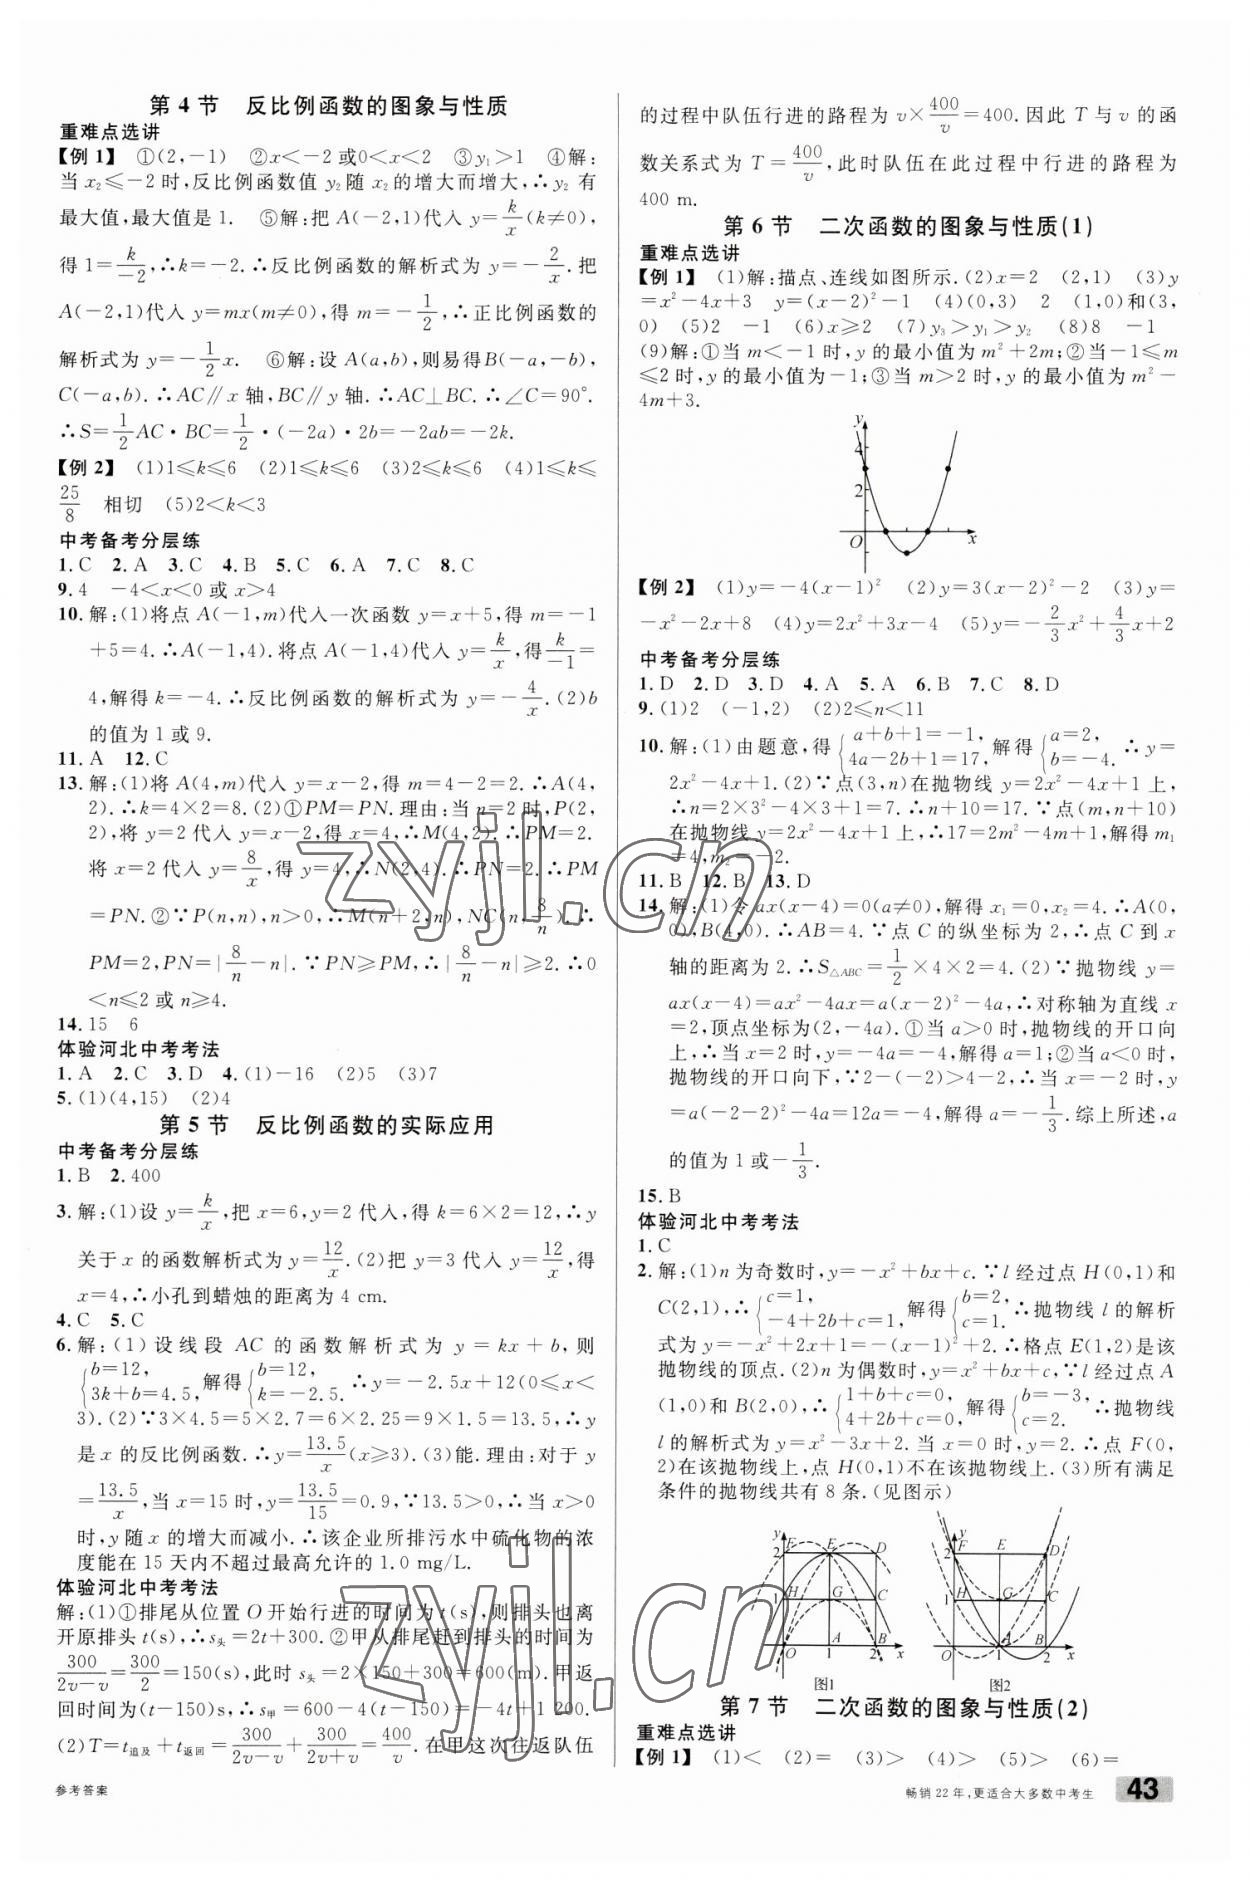 第 4 节　反比例函数的图象与性质
重难点选讲
【例 1】 ①(2,-1)　②x<-2 或0<x<2　③y₁>1　④解:
当 x₂≤-2 时,反比例函数值 y₂ 随 x₂ 的增大而增大,∴y₂ 有
最大值,最大值是 1.　⑤解:把 A(-2,1)代入 y=k/x(k≠0),
得 1=k/-2,∴k=-2.∴反比例函数的解析式为 y=-2/x.把
A(-2,1)代入 y=mx(m≠0),得 m=-1/2,∴正比例函数的
解析式为 y=-1/2x.　⑥解:设 A(a,b),则易得B(-a,-b),
C(-a,b).∴AC∥x 轴,BC∥y 轴.∴AC⊥BC.∴∠C=90°.
∴S=1/2AC·BC=1/2·(-2a)·2b=-2ab=-2k.
【例 2】 (1)1≤k≤6　(2)1≤k≤6　(3)2≤k≤6　(4)1≤k≤
25/8　相切　(5)2<k<3
中考备考分层练
1. C　2. A　3. C　4. B　5. C　6. A　7. C　8. C
9. 4　-4<x<0 或 x>4
10. 解:(1)将点 A(-1,m)代入一次函数 y=x+5,得 m=-1
+5=4.∴A(-1,4).将点 A(-1,4)代入 y=k/x,得k/-1=
4,解得 k=-4.∴反比例函数的解析式为 y=-4/x.(2)b
的值为 1 或 9.
11. A　12. C
13. 解:(1)将 A(4,m)代入 y=x-2,得 m=4-2=2.∴A(4,
2).∴k=4×2=8.(2)①PM=PN.理由:当 n=2 时,P(2,
2),将 y=2 代入 y=x-2,得 x=4,∴M(4,2).∴PM=2.
将 x=2 代入 y=8/x,得 y=4,∴N(2,4).∴PN=2.∴PM
=PN.②∵P(n,n),n>0,∴M(n+2,n),NC(n,8/n).∴
PM=2,PN=|8/n-n|.∵PN≥PM,∴|8/n-n|≥2.∴0
<n≤2 或 n≥4.
14. 15　6
体验河北中考考法
1. A　2. C　3. D　4. (1)-16　(2)5　(3)7
5. (1)(4,15)　(2)4
第 5 节　反比例函数的实际应用
中考备考分层练
1. B　2. 400
3. 解:(1)设 y=k/x,把 x=6,y=2 代入,得 k=6×2=12,∴y
关于 x 的函数解析式为 y=12/x.(2)把 y=3 代入 y=12/x,得
x=4,∴小孔到蜡烛的距离为 4 cm.
4. C　5. C
6. 解:(1)设线段 AC 的函数解析式为 y=kx+b,则
{b=12, 3k+b=4.5, 解得{b=12, k=-2.5. ∴y=-2.5x+12(0≤x<
3).(2)∵3×4.5=5×2.7=6×2.25=9×1.5=13.5,∴y
是 x 的反比例函数.∴y=13.5/x(x≥3).(3)能.理由:对于 y
=13.5/x,当 x=15 时,y=13.5/15=0.9,∵13.5>0,∴当 x>0
时,y 随 x 的增大而减小.∴该企业所排污水中硫化物的浓
度能在 15 天内不超过最高允许的 1.0 mg/L.
体验河北中考考法
解:(1)①排尾从位置 O 开始行进的时间为 t(s),则排头也离
开原排头 t(s),∴s头=2t+300.②甲从排尾赶到排头的时间为
300/2v-v=300/2=150(s),此时 s头=2×150+300=600(m).甲返
回时间为(t-150)s,∴s甲=600-4(t-150)=-4t+1 200.
(2)T=t追及+t返回=300/2v-v+300/2v+v=400/v.在甲这次往返队伍
的过程中队伍行进的路程为 v×400/v=400.因此 T 与 v 的函
数关系式为 T=400/v,此时队伍在此过程中行进的路程为
400 m.
第 6 节　二次函数的图象与性质(1)
重难点选讲
【例 1】 (1)解:描点、连线如图所示.(2)x=2　(2,1)　(3)y
=x²-4x+3　y=(x-2)²-1　(4)(0,3)　2　(1,0)和(3,
0)　(5)2　-1　(6)x≥2　(7)y₃>y₁>y₂　(8)8　-1
(9)解:①当 m<-1 时,y 的最小值为 m²+2m;②当-1≤m
≤2 时,y 的最小值为-1;③当 m>2 时,y 的最小值为 m²-
4m+3.
y 4 2 O x
【例 2】 (1)y=-4(x-1)²　(2)y=3(x-2)²-2　(3)y=
-x²-2x+8　(4)y=2x²+3x-4　(5)y=-2/3x²+4/3x+2
中考备考分层练
1. D　2. D　3. D　4. A　5. A　6. B　7. C　8. D
9. (1)2　(-1,2)　(2)2≤n<11
10. 解:(1)由题意,得{a+b+1=-1, 4a-2b+1=17, 解得{a=2, b=-4. ∴y=
2x²-4x+1.(2)∵点(3,n)在抛物线 y=2x²-4x+1 上,
∴n=2×3²-4×3+1=7.∴n+10=17.∵点(m,n+10)
在抛物线 y=2x²-4x+1 上,∴17=2m²-4m+1,解得 m₁
=4,m₂=-2.
11. B　12. B　13. D
14. 解:(1)令 ax(x-4)=0(a≠0),解得 x₁=0,x₂=4.∴A(0,
0),B(4,0).∴AB=4.∵点 C 的纵坐标为 2,∴点 C 到 x
轴的距离为 2.∴S△ABC=1/2×4×2=4.(2)∵抛物线 y=
ax(x-4)=ax²-4ax=a(x-2)²-4a,∴对称轴为直线 x
=2,顶点坐标为(2,-4a).①当 a>0 时,抛物线的开口向
上,∴当 x=2 时,y=-4a=-4,解得 a=1;②当 a<0 时,
抛物线的开口向下,∵2-(-2)>4-2,∴当 x=-2 时,y
=a(-2-2)²-4a=12a=-4,解得 a=-1/3.综上所述,a
的值为 1 或-1/3.
15. B
体验河北中考考法
1. C
2. 解:(1)n 为奇数时,y=-x²+bx+c.∵l 经过点 H(0,1)和
C(2,1),∴{c=1, -4+2b+c=1, 解得{b=2, c=1. ∴抛物线 l 的解析
式为 y=-x²+2x+1=-(x-1)²+2.∴格点 E(1,2)是该
抛物线的顶点.(2)n 为偶数时,y=x²+bx+c,∵l 经过点 A
(1,0)和 B(2,0),∴{1+b+c=0, 4+2b+c=0, 解得{b=-3, c=2. ∴抛物线
l 的解析式为 y=x²-3x+2.当 x=0 时,y=2.∴点 F(0,
2)在该抛物线上,点 H(0,1)不在该抛物线上.(3)所有满足
条件的抛物线共有 8 条.(见图示)
y 2 F E D 1 H G C O A B 1 2 x
图1
y 2 F E D 1 H G C O A B 1 2 x
图2
第 7 节　二次函数的图象与性质(2)
重难点选讲
【例 1】 (1)<　(2)=　(3)>　(4)>　(5)>　(6)=
参考答案
畅销 22 年,更适合大多数中考生　43
zyjl.cn
zyjl.cn